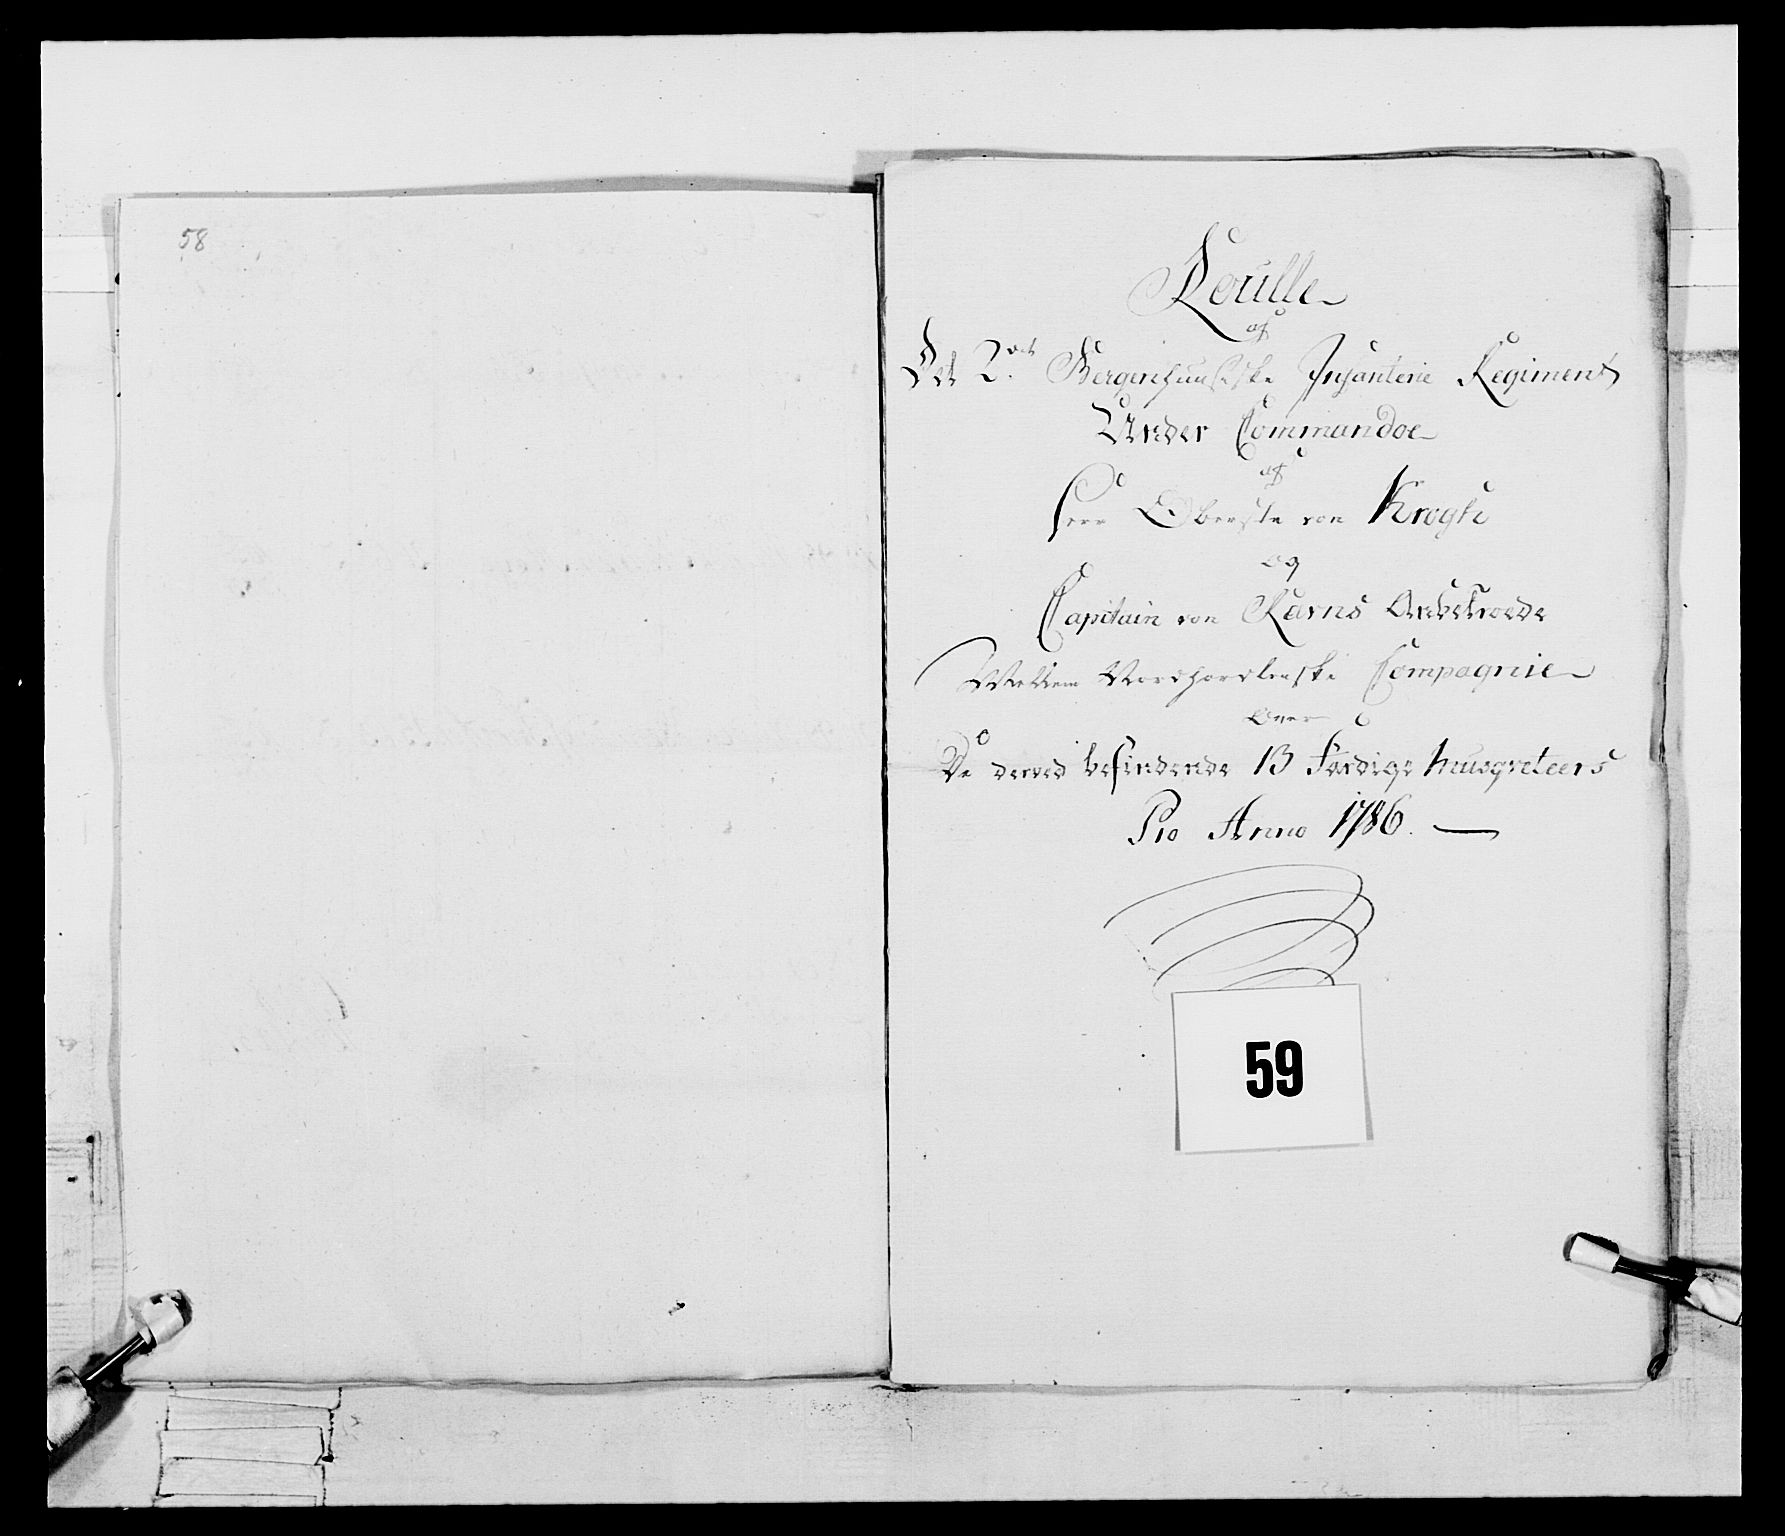 58
Roulle
af
Det 2det Bergenhuusiske Infanterie Regiment
Under Commandoe
af
Herr Oberste von Krogh
og
Capitain von Rams Anbetroede
Nordhordlenske Compagnie
Over
De derved befindende 13 Færdige
Pro Anno 1786.
59